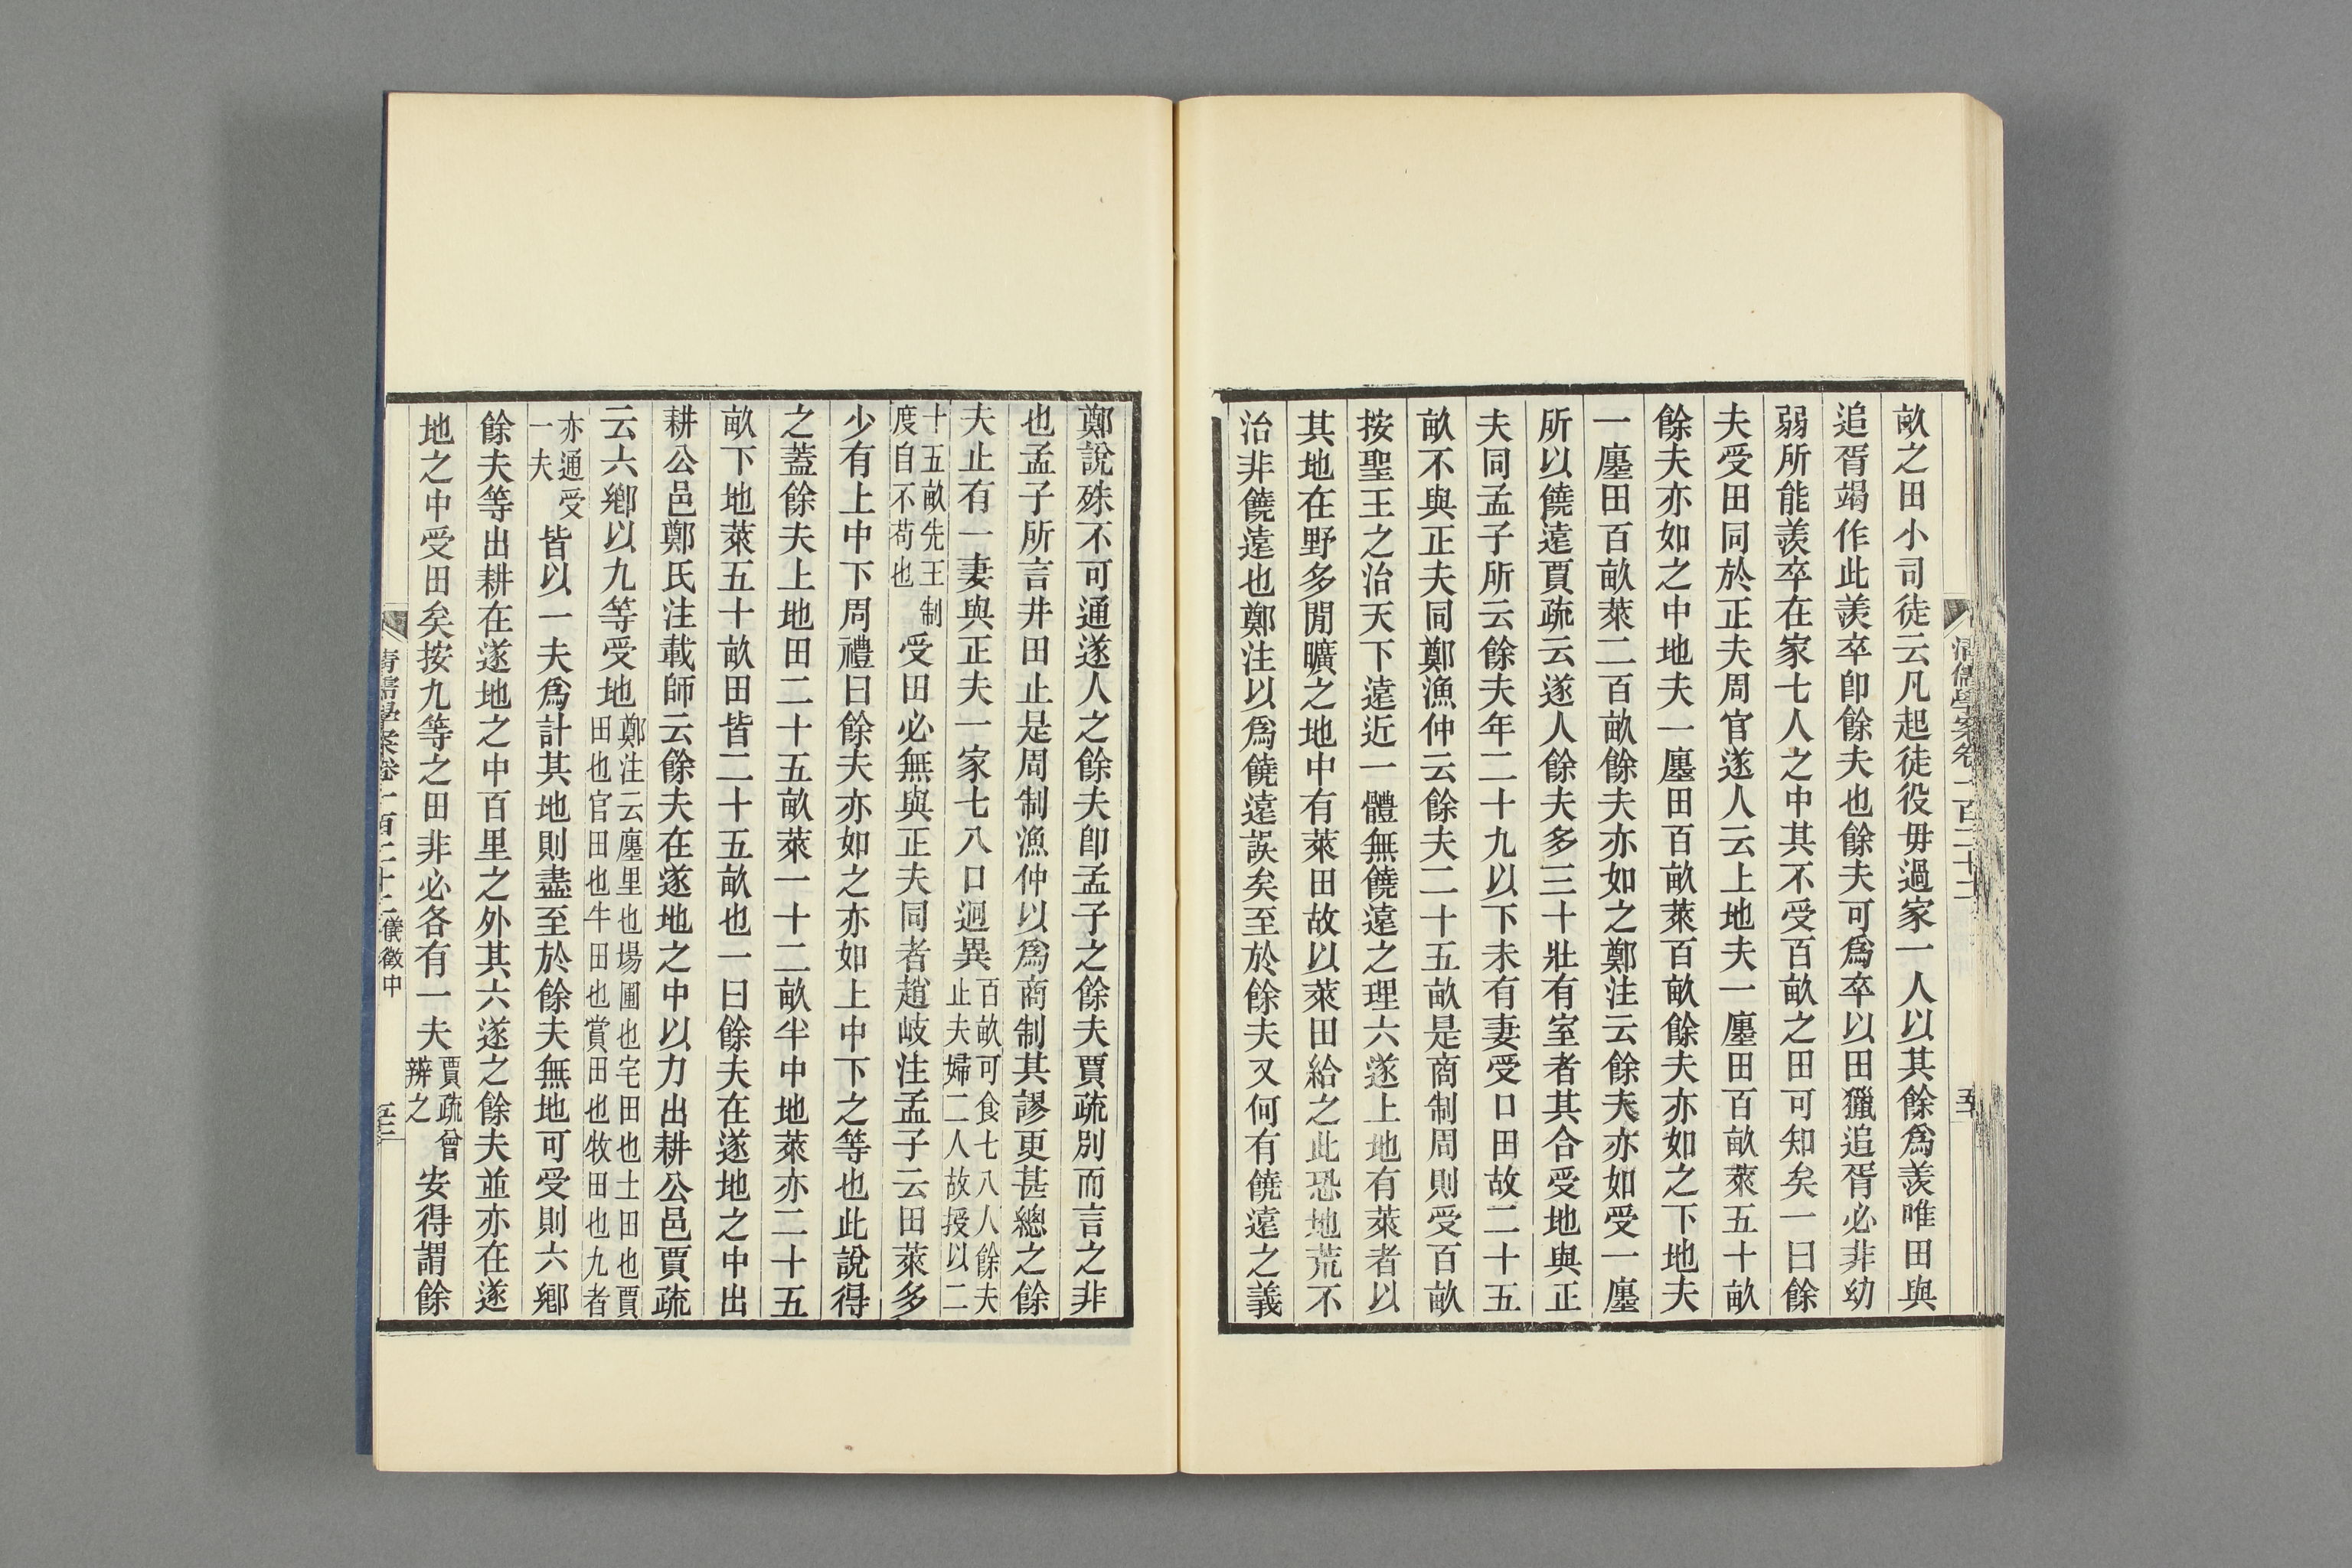 清儒學案卷一百二十二
畝之田小司徒云凡起徒役毋過家一人以其餘爲羨唯田與
追胥竭作此羨卒卽餘夫也餘夫可爲卒以田獵追胥必非幼
弱所能羨卒在家七人之中其不受百畝之田可知矣一曰餘
夫受田同於正夫周官遂人云上地夫一廛田百畝萊五十畝
餘夫亦如之中地夫一廛田百畝萊百畝餘夫亦如之下地夫
一廛田百畝萊二百畝餘夫亦如之鄭注云餘夫亦如受一廛
所以饒遠賈疏云遂人餘夫多三十壯有室者其合受地與正
夫同孟子所云餘夫年二十九以下未有妻受口田故二十五
畝不與正夫同鄭漁仲云餘夫二十五畝是商制周則受百畝
按聖王之治天下遠近一體無饒遠之理六遂上地有萊者以
其地在野多閒曠之地中有萊田故以萊田給之此恐地荒不
治非饒遠也鄭注以爲饒遠誤矣至於餘夫又何有饒遠之義
鄭說殊不可通遂人之餘夫卽孟子之餘夫賈疏別而言之非
也孟子所言井田止是周制漁仲以爲商制其謬更甚總之餘
夫止有一妻與正夫一家七八口迥異百畝可食七八人餘夫
止夫婦二人故授以二
十五畝先王制
度自不苟也
受田必無與正夫同者趙岐注孟子云田萊多
少有上中下周禮曰餘夫亦如之亦如上中下之等也此說得
之蓋餘夫上地田二十五畝萊一十二畝半中地萊亦二十五
畝下地萊五十畝田皆二十五畝也一曰餘夫在遂地之中出
耕公邑鄭氏注載師云餘夫在遂地之中以力出耕公邑賈疏
云六鄉以九等受地鄭注云廛里也場圃也宅田也士田也賈
田也官田也牛田也賞田也牧田也九者
亦通受
一夫
皆以一夫爲計其地則盡至於餘夫無地可受則六鄉
餘夫等出耕在遂地之中百里之外其六遂之餘夫並亦在遂
地之中受田矣按九等之田非必各有一夫賈疏曾
辨之
安得謂餘
清儒學案卷一百二十二 儀徵中